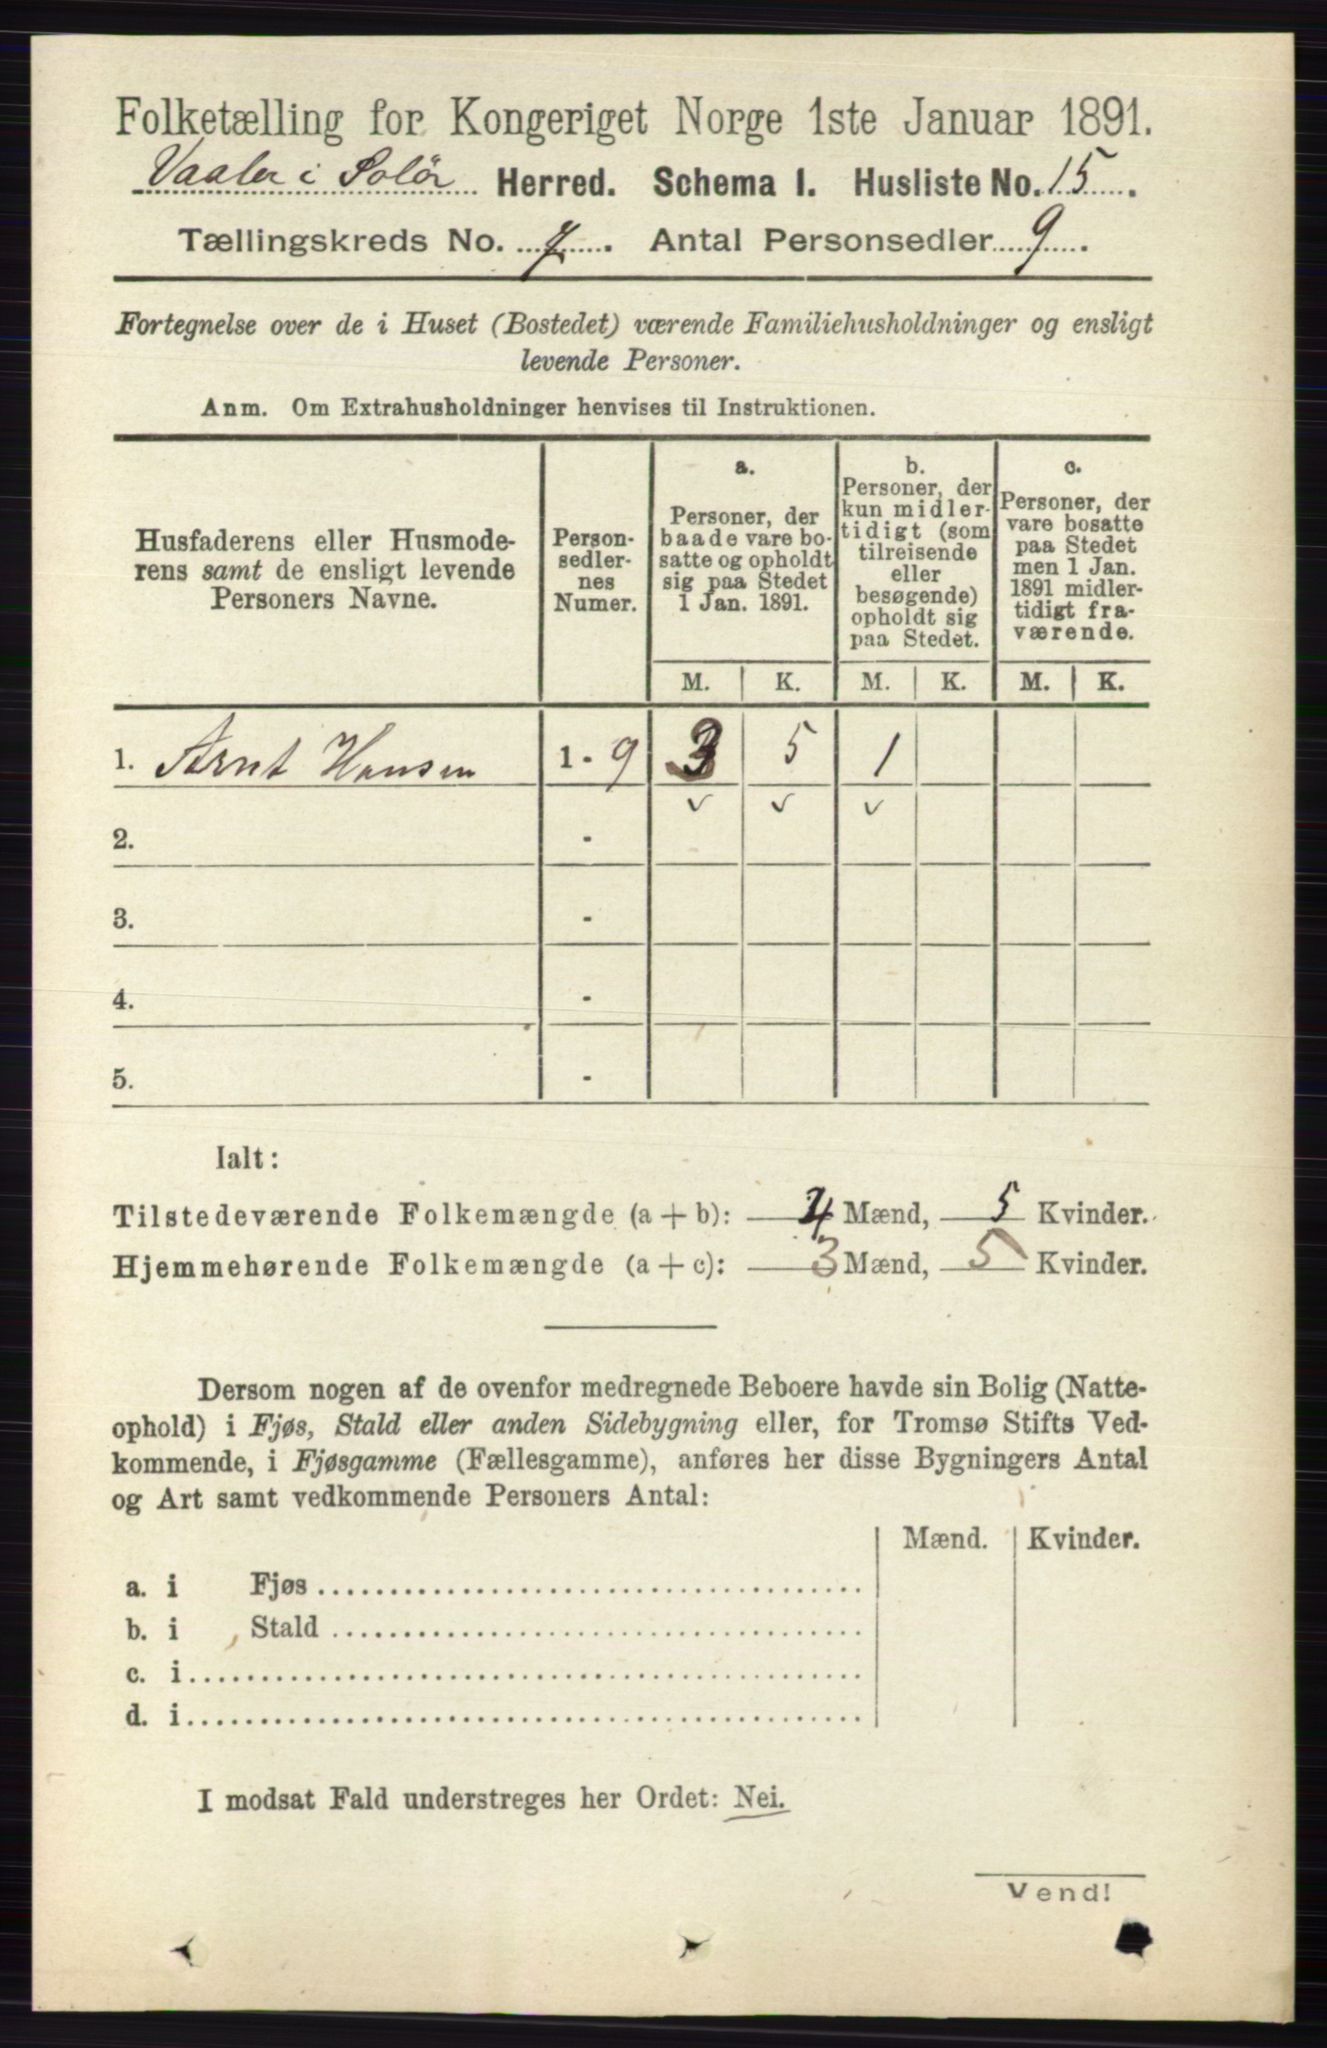 Folketælling for Kongeriget Norge 1ste Januar 1891.
Vaaler i Solör Herred. Schema 1. Husliste No. 15.
Tællingskreds No. 7. Antal Personsedler 9.
Fortegnelse over de i Huset (Bostedet) værende Familiehusholdninger og ensligt
levende Personer.
Anm. Om Extrahusholdninger henvises til Instruktionen.
Husfaderens eller Husmode-
rens samt de ensligt levende
Personers Navne.
Person-
sedler-
nes
Numer.
a.
Personer, der
baade vare bo-
satte og opholdt
sig paa Stedet
1 Jan. 1891.
b.
Personer, der
kun midler-
tidigt (som
tilreisende
eller
besøgende)
opholdt sig
paa Stedet.
c.
Personer, der
vare bosatte
paa Stedet
men 1 Jan.
1891 midler-
tidigt fra-
værende.
M. K. M. K. M. K.
1. Arnt Hansen 1 - 9 3 5 1
2. - ✓ ✓ ✓
3. -
4. -
5. -
Ialt:
Tilstedeværende Folkemængde (a + b): 4 Mænd, 5 Kvinder.
Hjemmehørende Folkemængde (a + c): 3 Mænd, 5 Kvinder.
Dersom nogen af de ovenfor medregnede Beboere havde sin Bolig (Natte-
ophold) i Fjøs, Stald eller anden Sidebygning eller, for Tromsø Stifts Ved-
kommende, i Fjøsgamme (Fællesgamme), anføres her disse Bygningers Antal
og Art samt vedkommende Personers Antal:
Mænd. Kvinder.
a. i Fjøs
b. i Stald
c. i
d. i
I modsat Fald understreges her Ordet: Nei.
Vend!